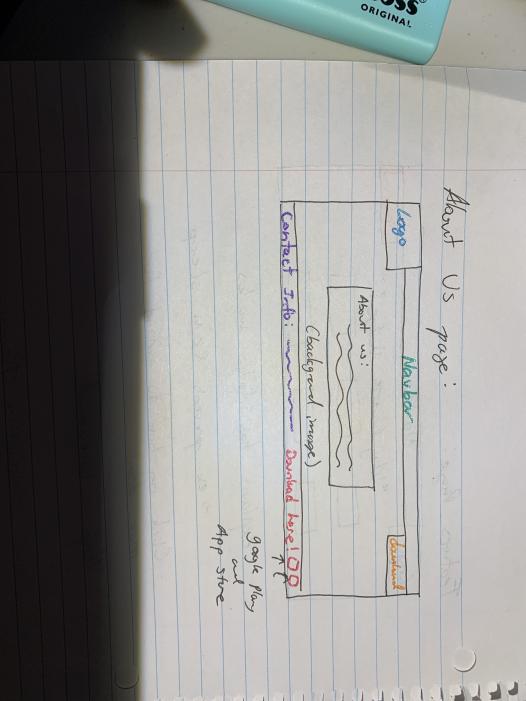 About Us page:
Logo
Navbar
Download
About us:
(background image)
Contact Info:
Download here!
google Play
and
App store
ORIGINAL